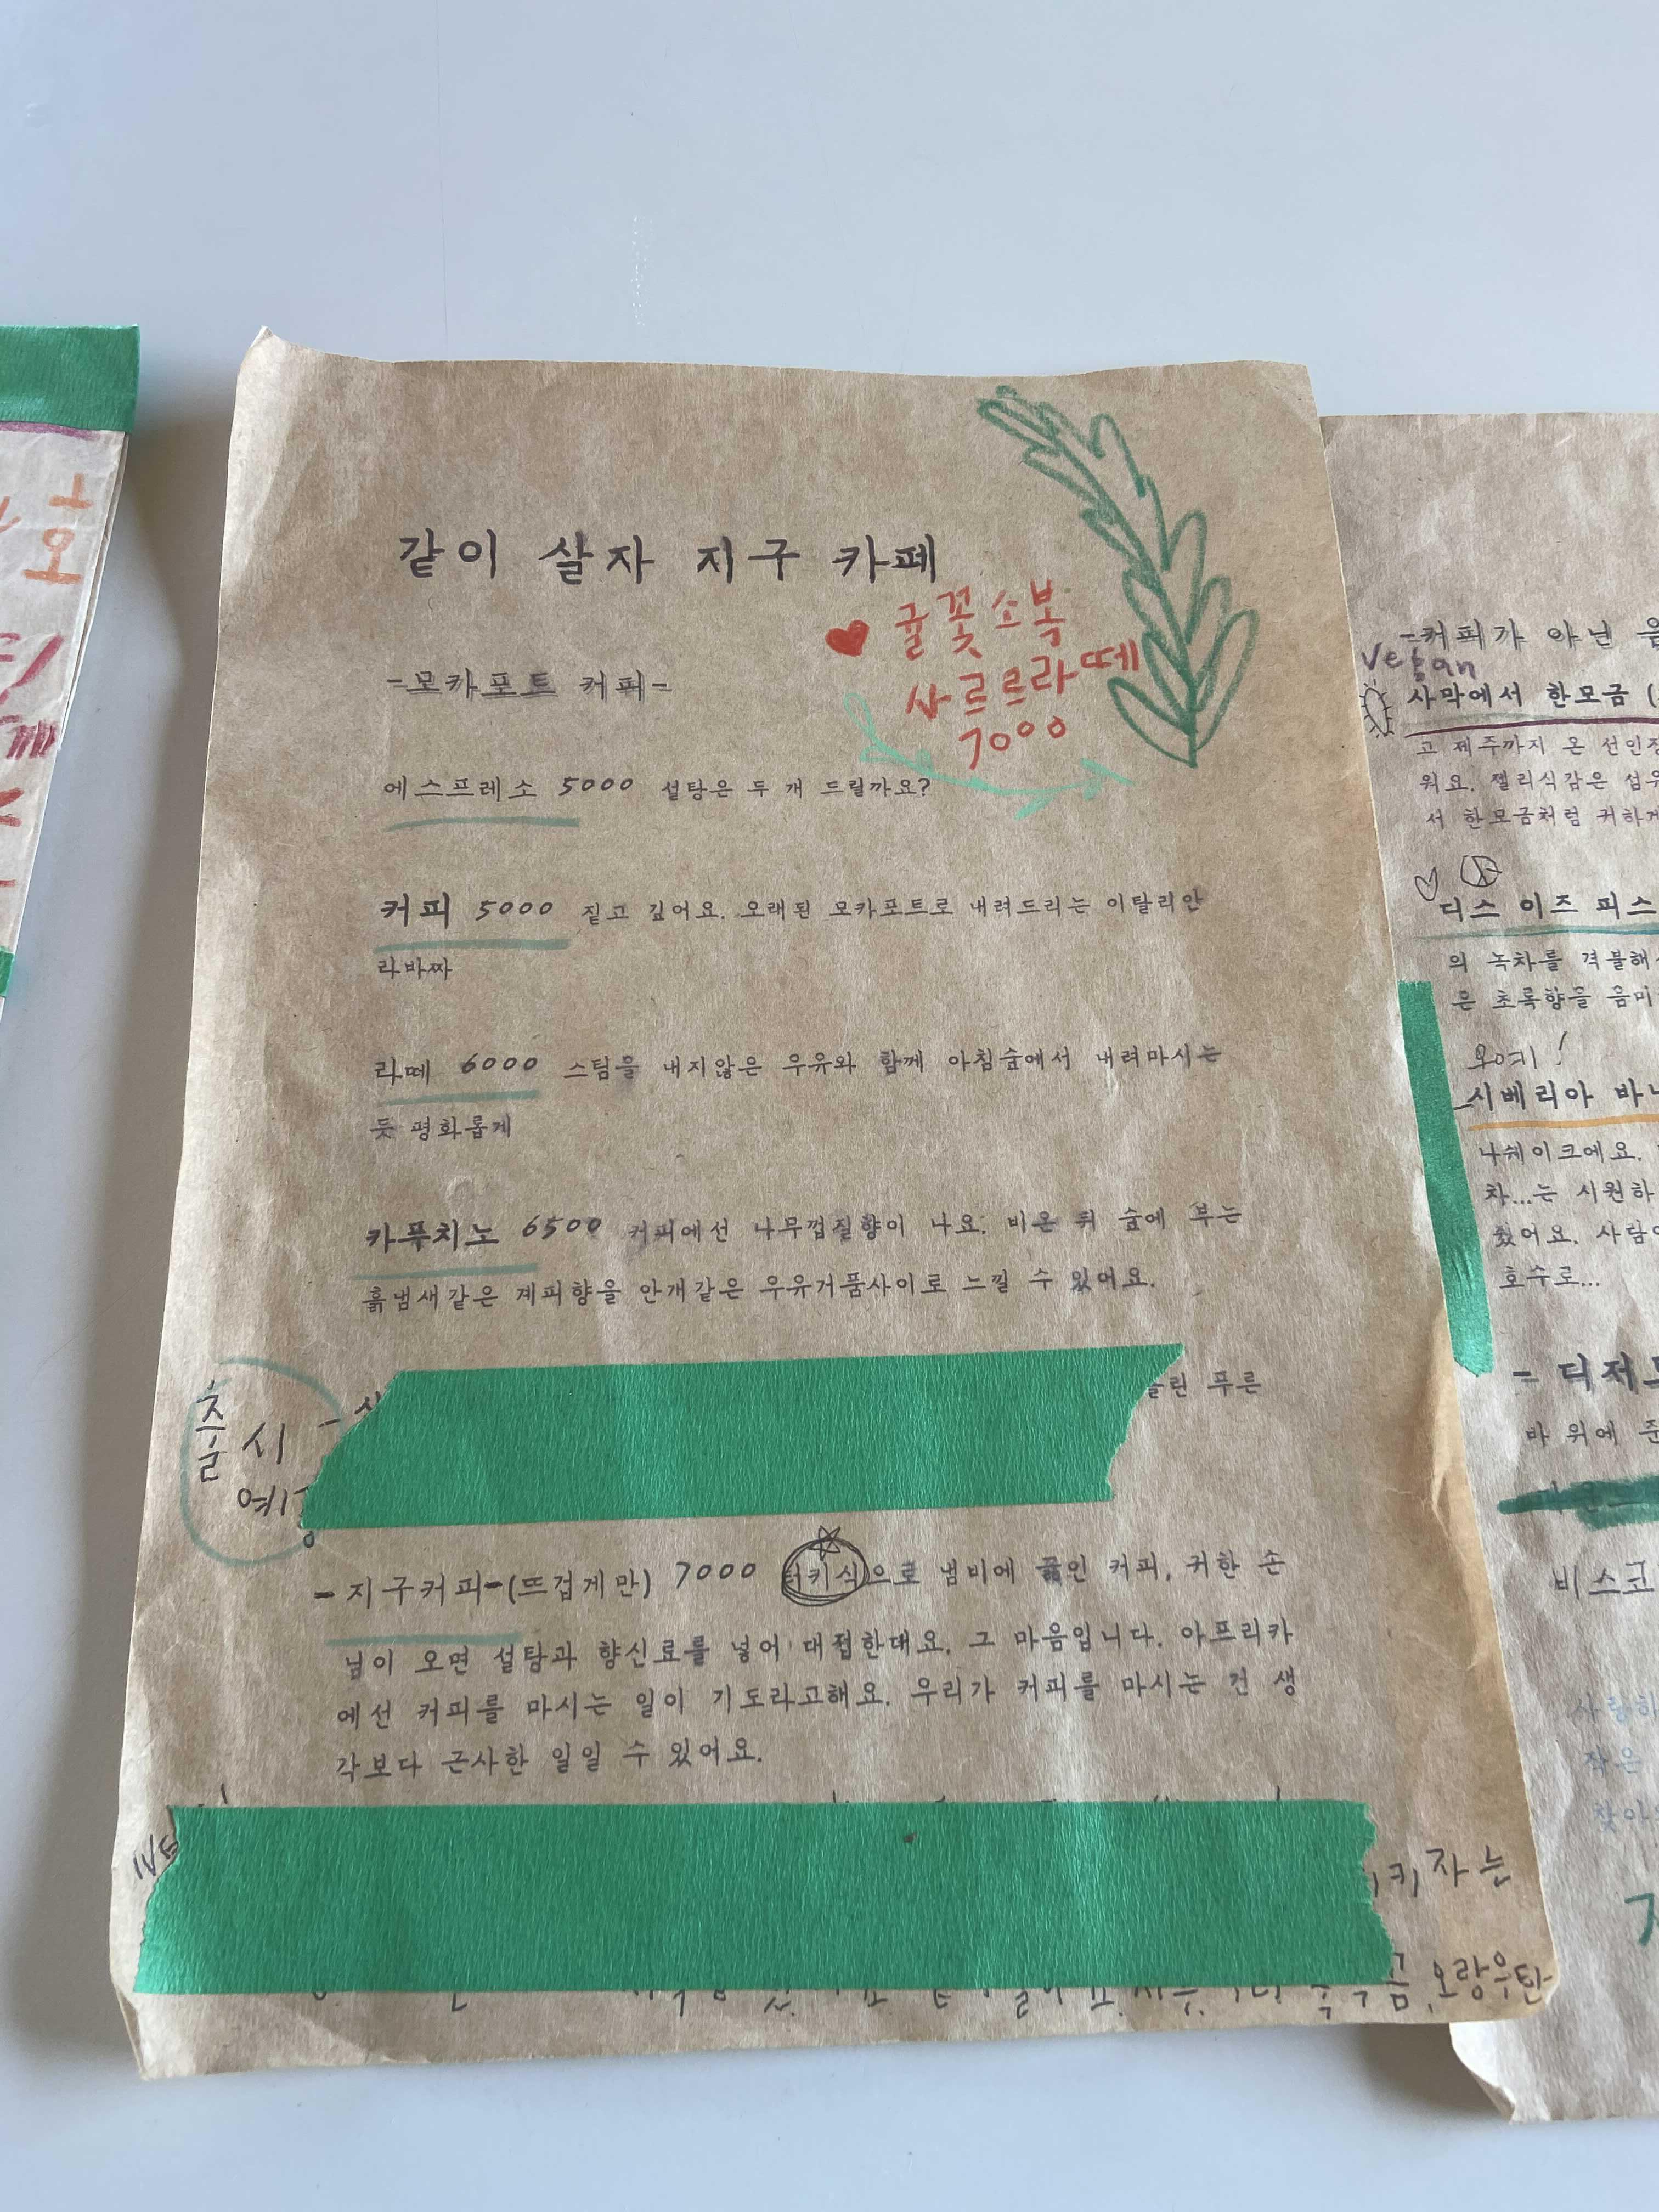 같이 살자 지구 카페
귤꽃소복
사르르라떼
7000
-모카포트 커피-
에스프레소 5000 설탕은 두 개 드릴까요?
커피 5000 짙고 깊어요. 오래된 모카포트로 내려드리는 이탈리안
라바짜
라떼 6000 스팀을 내지않은 우유와 함께 아침숲에서 내려마시는
듯 평화롭게
카푸치노 6500 커피에선 나무껍질향이 나요. 비온 뒤 숲에 부는
흙냄새같은 계피향을 안개같은 우유거품사이로 느낄 수 있어요.
출시
예정
푸른
-지구커피-(뜨겁게만) 7000 터키식으로 냄비에 끓인 커피, 귀한 손
님이 오면 설탕과 향신료를 넣어 대접한대요. 그 마음입니다. 아프리카
에선 커피를 마시는 일이 기도라고해요. 우리가 커피를 마시는 건 생
각보다 근사한 일일 수 있어요.
키자는
오랑우탄
-커피가 아닌
Vegan
사막에서 한모금
고 제주까지 온 선인장
워요. 젤리식감은
서 한모금처럼 귀하게
디스 이즈 피스
의 녹차를 격불해
은 초록향을 음미
오예!
시베리아 바나
나쉐이크에요.
차...는 시원하
췄어요. 사람
호수로...
- 디저트
바 위에 준
비스코
작은
찾아